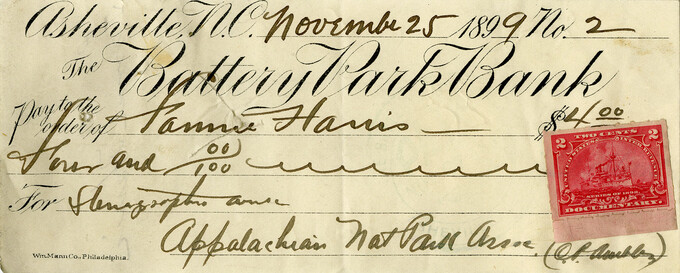 Asheville, N.C. November 25 1899 No. 2
The Battery Park Bank
Pay to the order of Fannie Harris $4.00
Four and 00/100
For Stenographic work
Appalachian Nat Park Assoc
(C.P. Ambler)
Wm. Mann Co., Philadelphia.
2 TWO CENTS 2
UNITED STATES INTER. REVENUE
SERIES OF 1898
DOCUMENTARY.